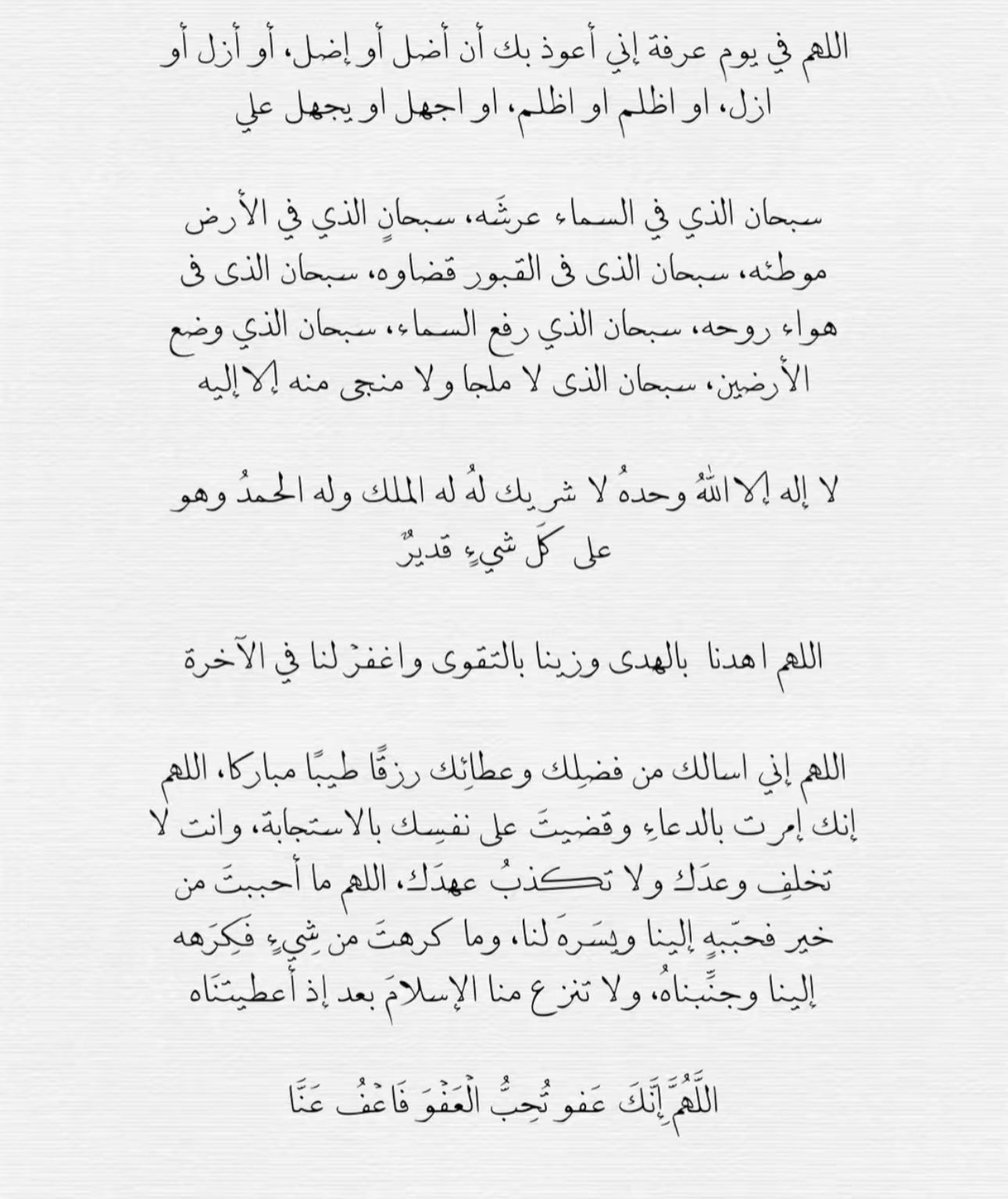 اللهم في يوم عرفة إني أعوذ بك أن أضل أو إضل، أو أزل أو
ازل، او اظلم او اظلم، او اجهل او يجهل علي
سبحان الذي في السماء عرشَه، سبحانٍ الذي في الأرض
موطئه، سبحان الذى فى القبور قضاوه، سبحان الذى فى
هواء روحه، سبحان الذي رفع السماء، سبحان الذي وضع
الأرضين، سبحان الذى لا ملجا ولا منجى منه إلا إليه
لا إله إلا اللهُ وحدهُ لا شريك لهُ له الملك وله الحمدُ وهو
على كلَ شيءٍ قديرٌ
اللهم اهدنا بالهدى وزينا بالتقوى واغفرْ لنا في الآخرة
اللهم إني اسالك من فضلِك وعطائِك رزقًا طيبًا مباركا، اللهم
إنك إمرت بالدعاءِ وقضيتَ على نفسِك بالاستجابة، وانت لا
تخلفِ وعدَك ولا تكذبُ عهدَك، اللهم ما أحببتَ من
خير فحبّببهٍ إلينا ويسَرهَ لنا، وما كرهتَ من شِيءٍ فَكِرَهه
إلينا وجنِّبناهُ، ولا تنزع منا الإسلامَ بعد إذ أعطيتنَاه
اللَّهُمَّ إِنَّكَ عَفو تُحِبُّ الْعَفْوَ فَاعْفُ عَنَّا